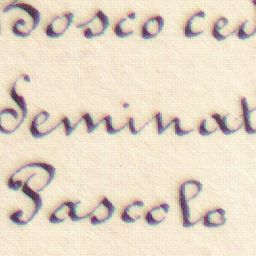 Bosco ced
Seminat
Pascolo